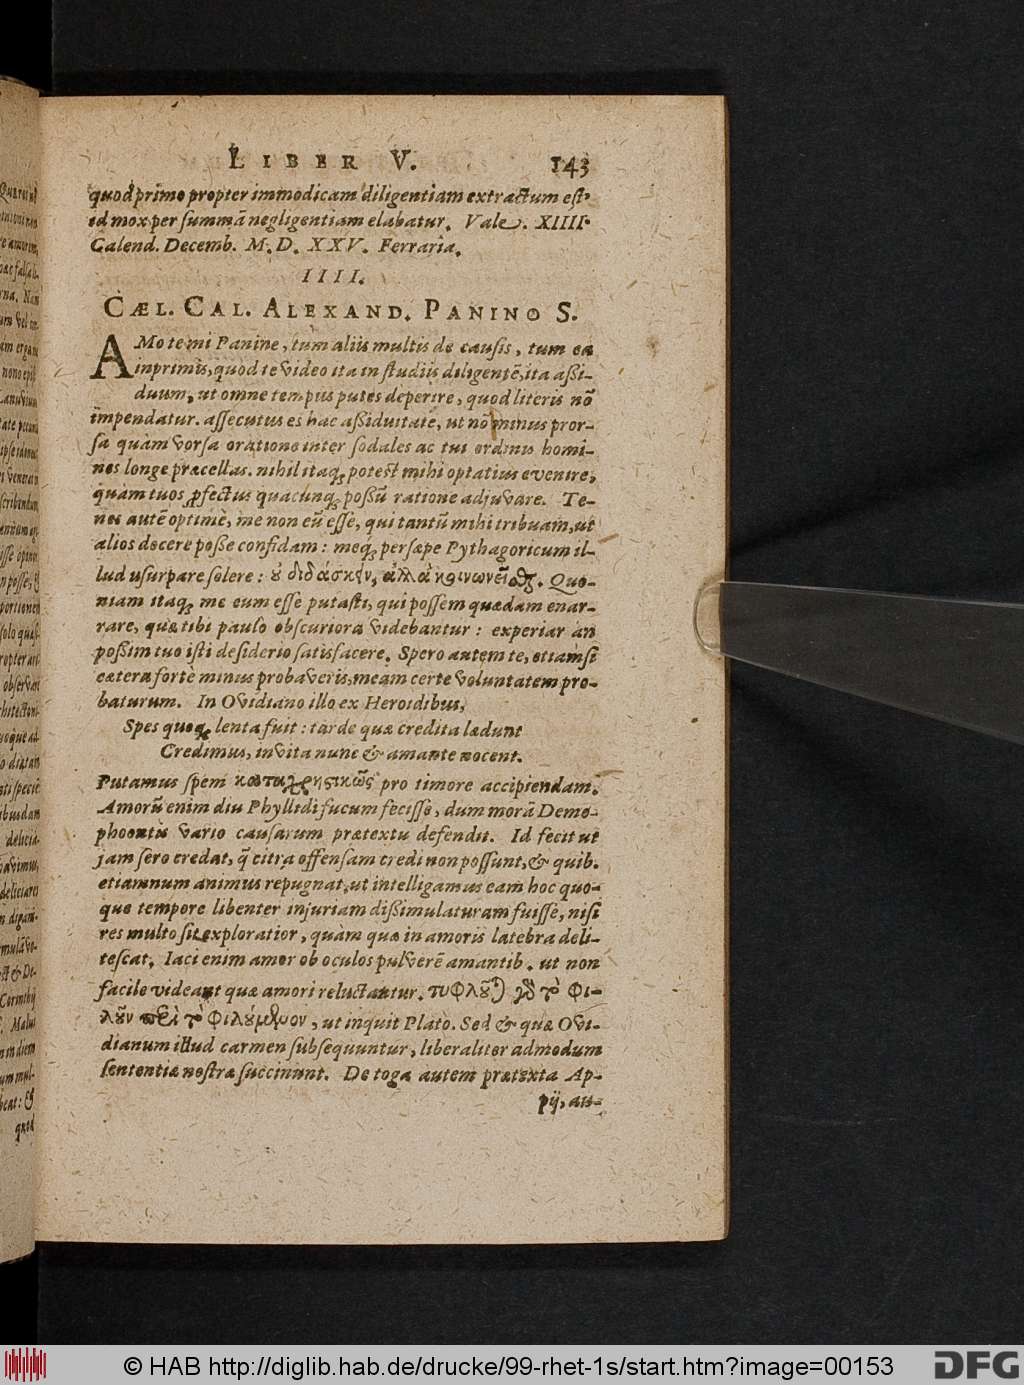 LIBER V. 143
quod primo propter immodicam diligentiam extractum est,
id mox per summā negligentiam elabatur. Vale. XIIII.
Calend. Decemb. M. D. XXV. Ferraria.
IIII.
CÆL. CAL. ALEXAND. PANINO S.
AMo te mi Panine, tùm aliis multis de causis, tum ea
inprimis, quod te video ita in studiis diligentē, ita aßi-
duum, ut omne tempus putes deperire, quod literis nō
impendatur. assecutus es hac aßiduitate, ut nō minus pror-
sa quàm vorsa oratione inter sodales ac tui ordinis homi-
nes longe præcellas. nihil itaq; potest mihi optatius evenire,
quàm tuos ꝓfectus quacunq; possū ratione adjuvare. Te-
nes autē optimè, me non eū esse, qui tantū mihi tribuam, ut
alios docere posse confidam: meq; persæpe Pythagoricum il-
lud usurpare solere: οὐ διδάσκειν, ἀλλὰ κοινωνεῖσθαι. Quo-
niam itaq; me eum esse putasti, qui possem quædam enar-
rare, quæ tibi paulo obscuriora videbantur: experiar an
poßim tuo isti desiderio satisfacere. Spero autem te, etiamsi
cætera fortè minus probaveris, meam certe voluntatem pro-
baturum. In Ovidiano illo ex Heroidibus,
Spes quoq; lenta fuit: tarde quæ credita lædunt
Credimus, invita nunc & amante nocent.
Putamus spem καταχρηστικῶς pro timore accipiendam.
Amorū enim diu Phyllidi fucum fecisse, dum morā Demo-
phoontis vario causarum prætextu defendit. Id fecit ut
jam sero credat, q̄ citra offensam credi non possunt, & quib.
etiamnum animus repugnat, ut intelligamus eam hoc quo-
que tempore libenter injuriam dißimulaturam fuisse, nisi
res multo sit exploratior, quàm quæ in amoris latebra deli-
tescat. Iaci enim amor ob oculos pulverē amantib. ut non
facile videant quæ amori reluctantur. τυφλοῦται γὰρ τὸ φι-
λοῦν περὶ τὸ φιλούμενον, ut inquit Plato. Sed & quæ Ovi-
dianum illud carmen subsequuntur, liberaliter admodum
sententiæ nostræ succinunt. De toga autem prætexta Ap-
pij, au-
Nam
vel
nono
& De-
Corinthij
Malus
quod
© HAB http://diglib.hab.de/drucke/99-rhet-1s/start.htm?image=00153
DFG